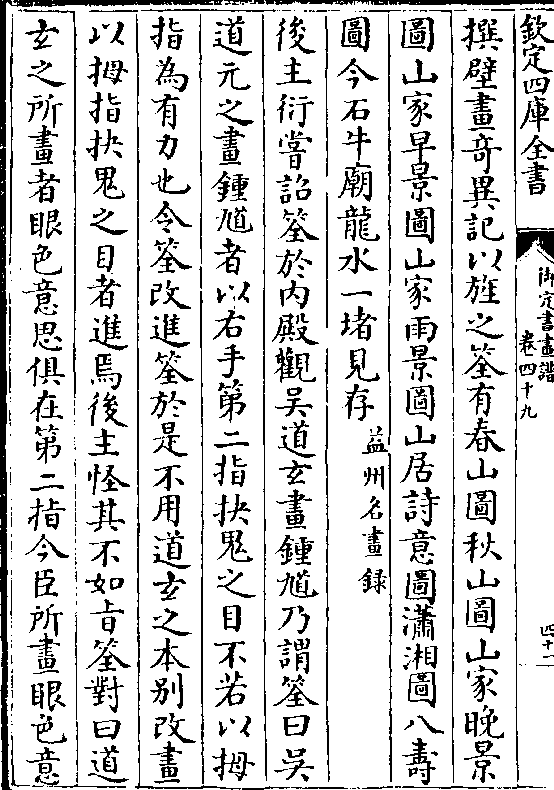 欽定四庫全書
御定書畫譜
卷四十九
四十一
撰壁畫竒異記以旌之筌有春山圖秋山圖山家晚景
圖山家早景圖山家雨景圖山居詩意圖瀟湘圖八壽
圖今石牛廟龍水一堵見存 益州名畫録
後主衍嘗詔筌於内殿觀吴道玄畫鍾馗乃謂筌曰吴
道元之畫鍾馗者以右手第二指抉鬼之目不若以拇
指為有力也令筌改進筌於是不用道玄之本别改畫
以拇指抉鬼之目者進焉後主怪其不如旨筌對曰道
玄之所畫者眼色意思俱在第二指今臣所畫眼色意